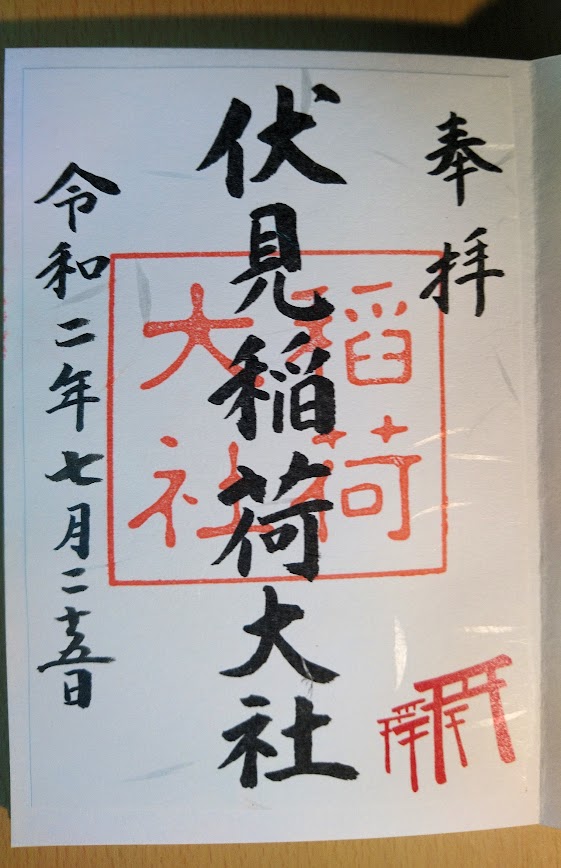 奉拝
伏見稲荷大社
稲荷
大社
令和二年七月二十五日